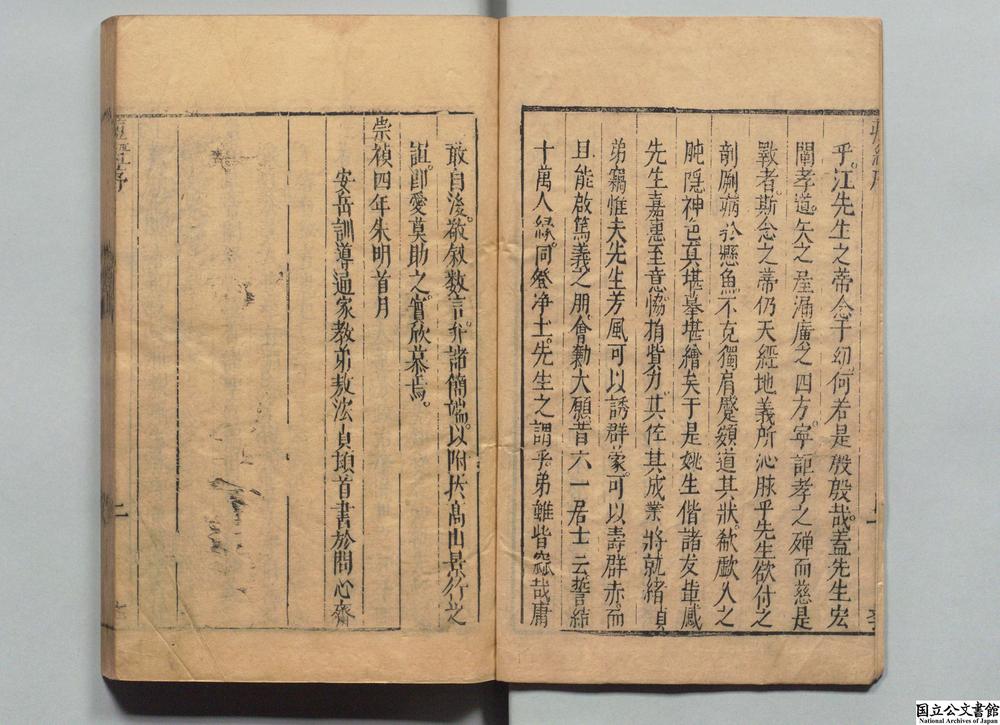 乎江先生之蒂念于幼何若是殷殷哉蓋先生宏
闡孝道矢之屋漏廣之四方寧詎孝之殫而慈是
戰者斯念之蒂仍天經地義所沁脉乎先生欲付之
剞劂病於懸魚不克獨肩蹙頞道其狀欷歔久之
肫隱神色真堪摹堪繪矣于是姚生偕諸友輩感
先生嘉惠至意恊捐貲力其佐其成業將就緒貞
弟竊惟夫先生芳風可以誘群蒙可以壽群赤而
且能啟篤義之朋會勷大願昔六一居士云誓結
十萬人緣同登净土先生之謂乎弟雖呰窳哉庸
敢自後敬敘數言弁諸簡端以附於高山景行之
誼即愛莫助之實欣慕焉
崇禎四年朱明首月
安岳訓導通家教弟敖法貞頓首書於問心齋
二
国立公文書館
National Archives of Japan